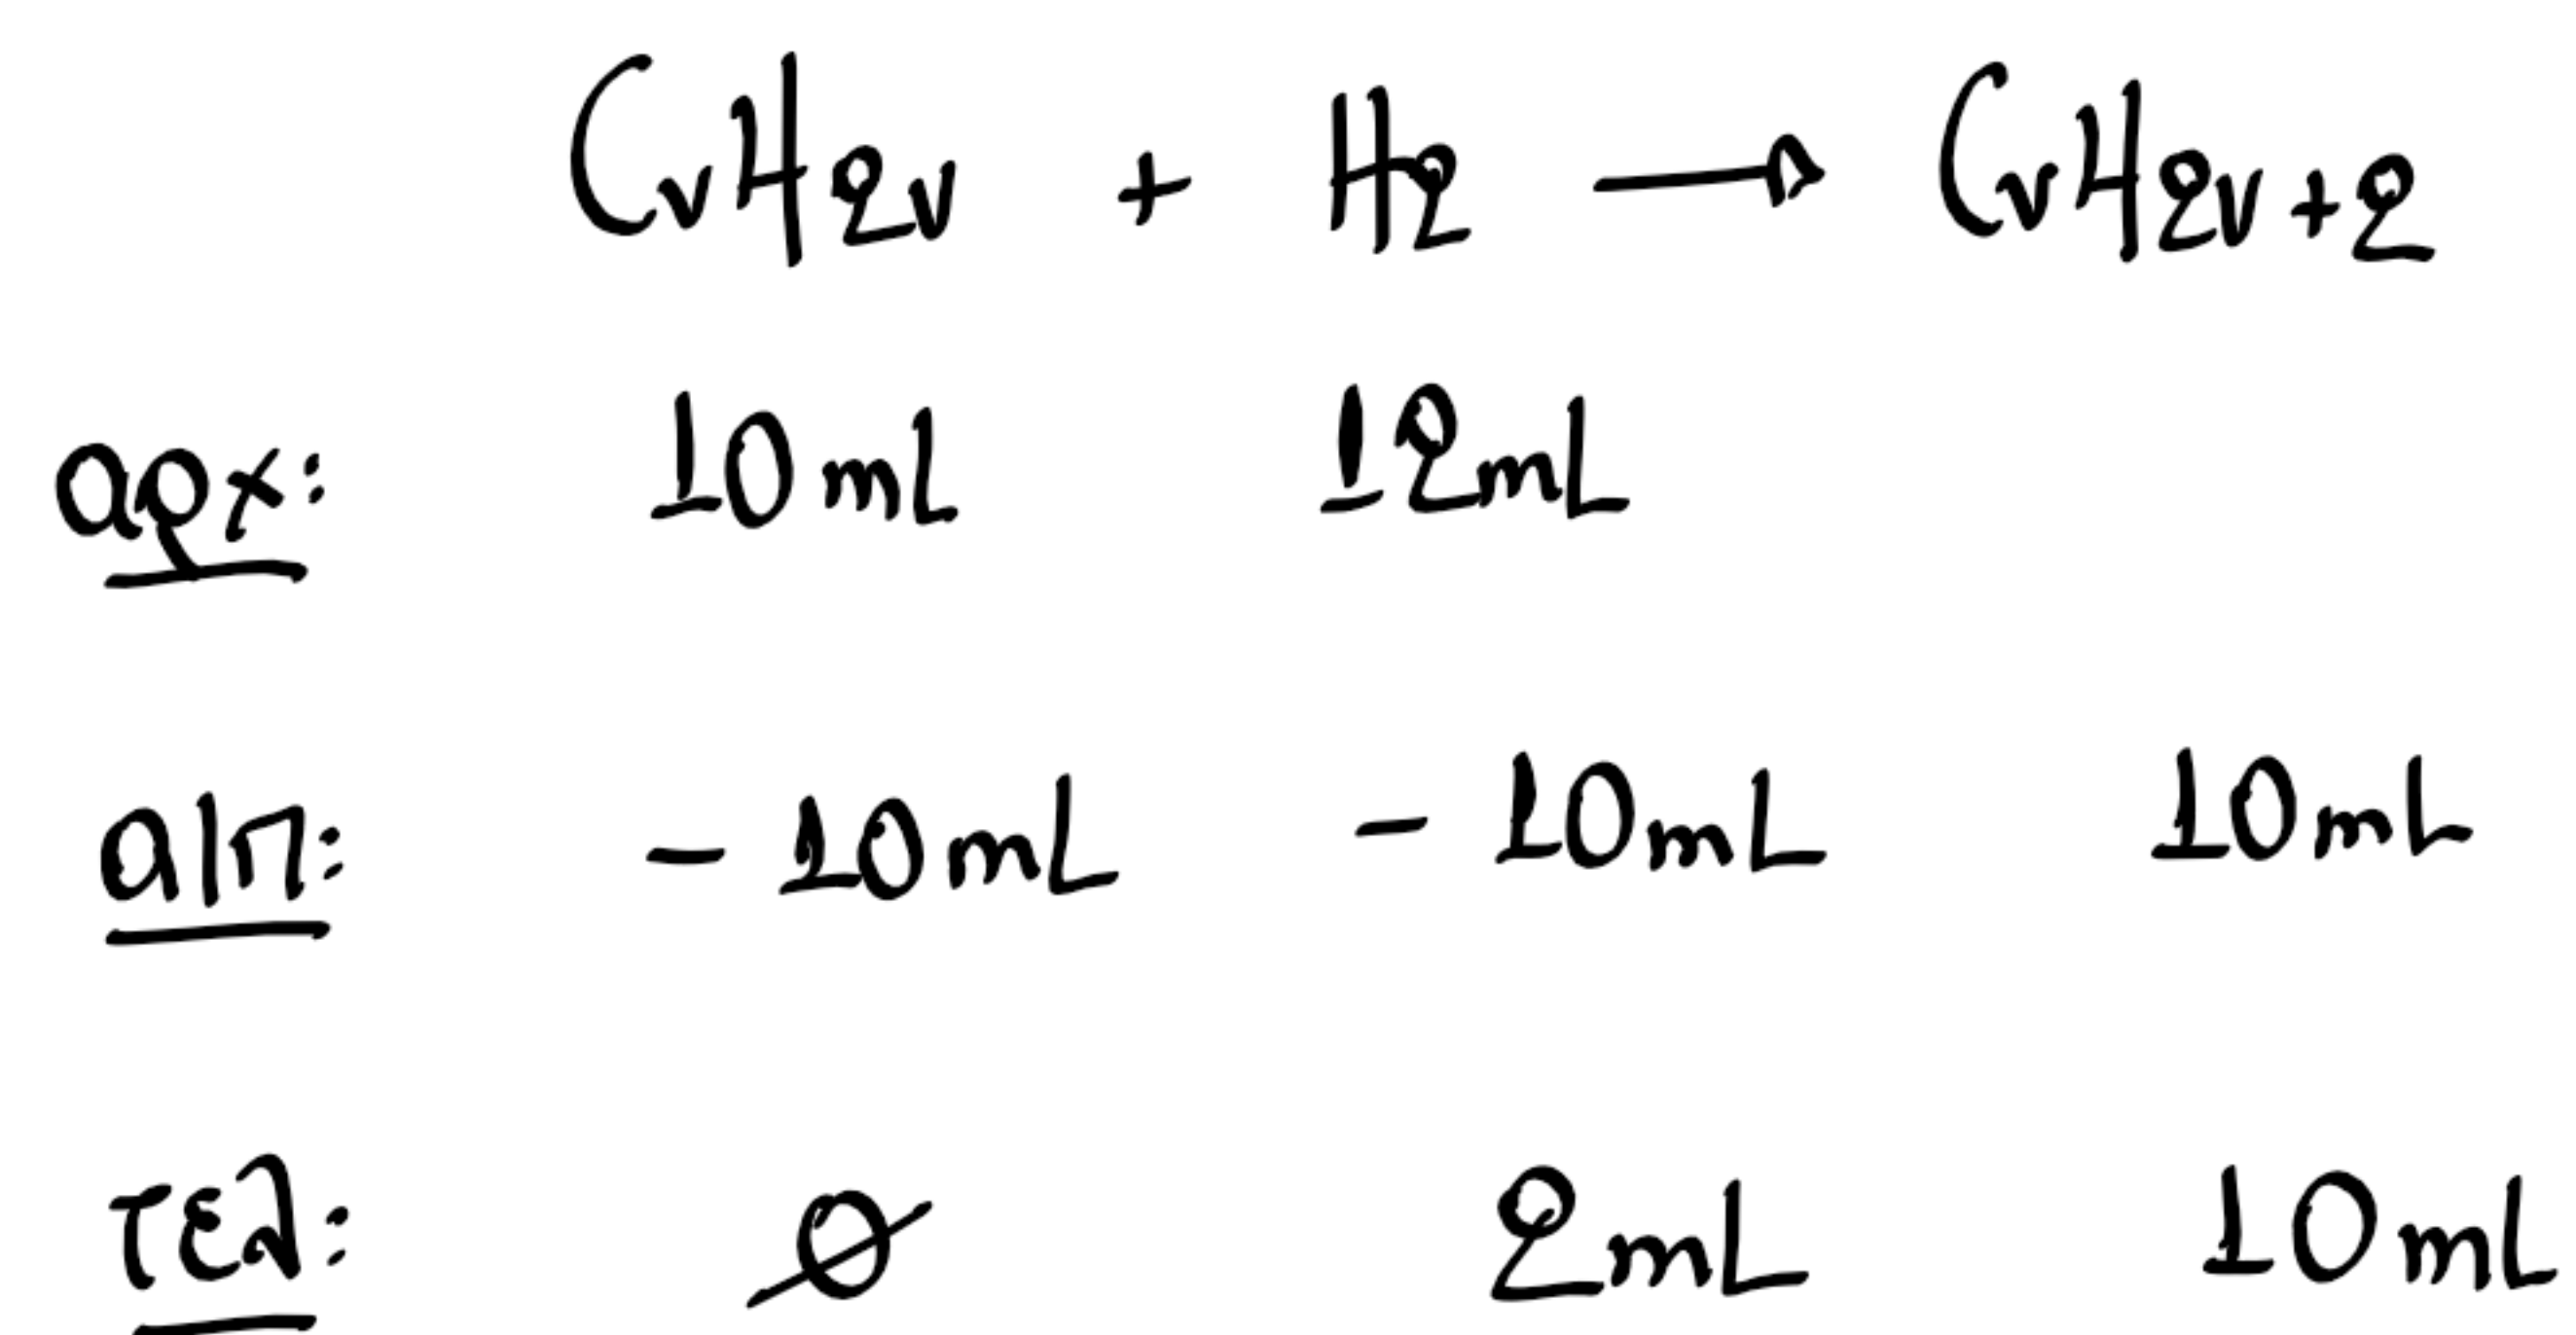 CνH2ν + H2 → CνH2ν+2
αρχ: 10mL 12mL
αlπ: -10mL -10mL 10mL
τελ: ∅ 2mL 10mL